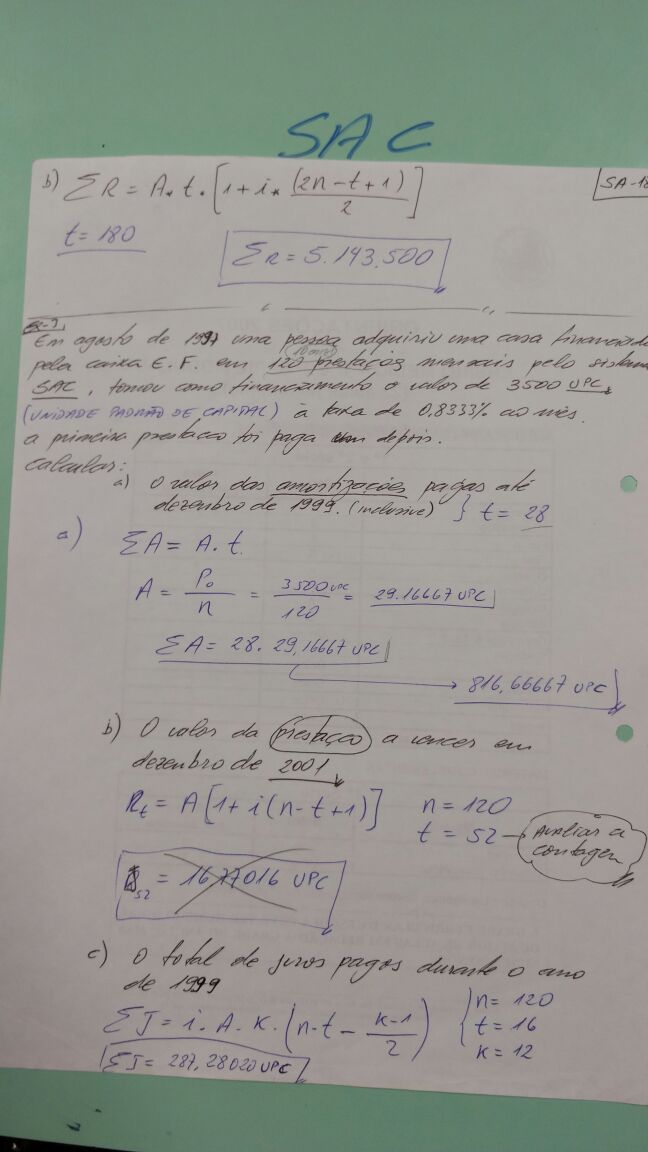 SAC
b) ΣR = A * t * [1 + i * (2n - t + 1) / 2]
SA-18
t = 180
ΣR = 5.143.500
Ex-9
Em agosto de 1997 uma pessoa adquiriu uma casa financiada
(10 anos)
pela caixa E.F. em 120 prestações mensais pelo sistema
SAC, tomou como financiamento o valor de 3500 UPC,
(UNIDADE PADRÃO DE CAPITAL) à taxa de 0,8333% ao mês.
a primeira prestação foi paga um depois.
Calcular:
a) O valor das amortizações pagas até
dezembro de 1999. (inclusive) } t = 28
a) ΣA = A . t.
A = P₀ / n = 3500 UPC / 120 = 29.16667 UPC
ΣA = 28 . 29,16667 UPC
816,66667 UPC
b) O valor da prestação a vencer em
dezembro de 2001
Rt = A [1 + i (n - t + 1)] n = 120
t = 52 → Avaliar a
contagem
52 = 1677016 UPC
c) O total de juros pagos durante o ano
de 1999
ΣJ = i . A . K . (n - t - (K - 1) / 2) { n = 120
t = 16
K = 12
ΣJ = 287,28020 UPC